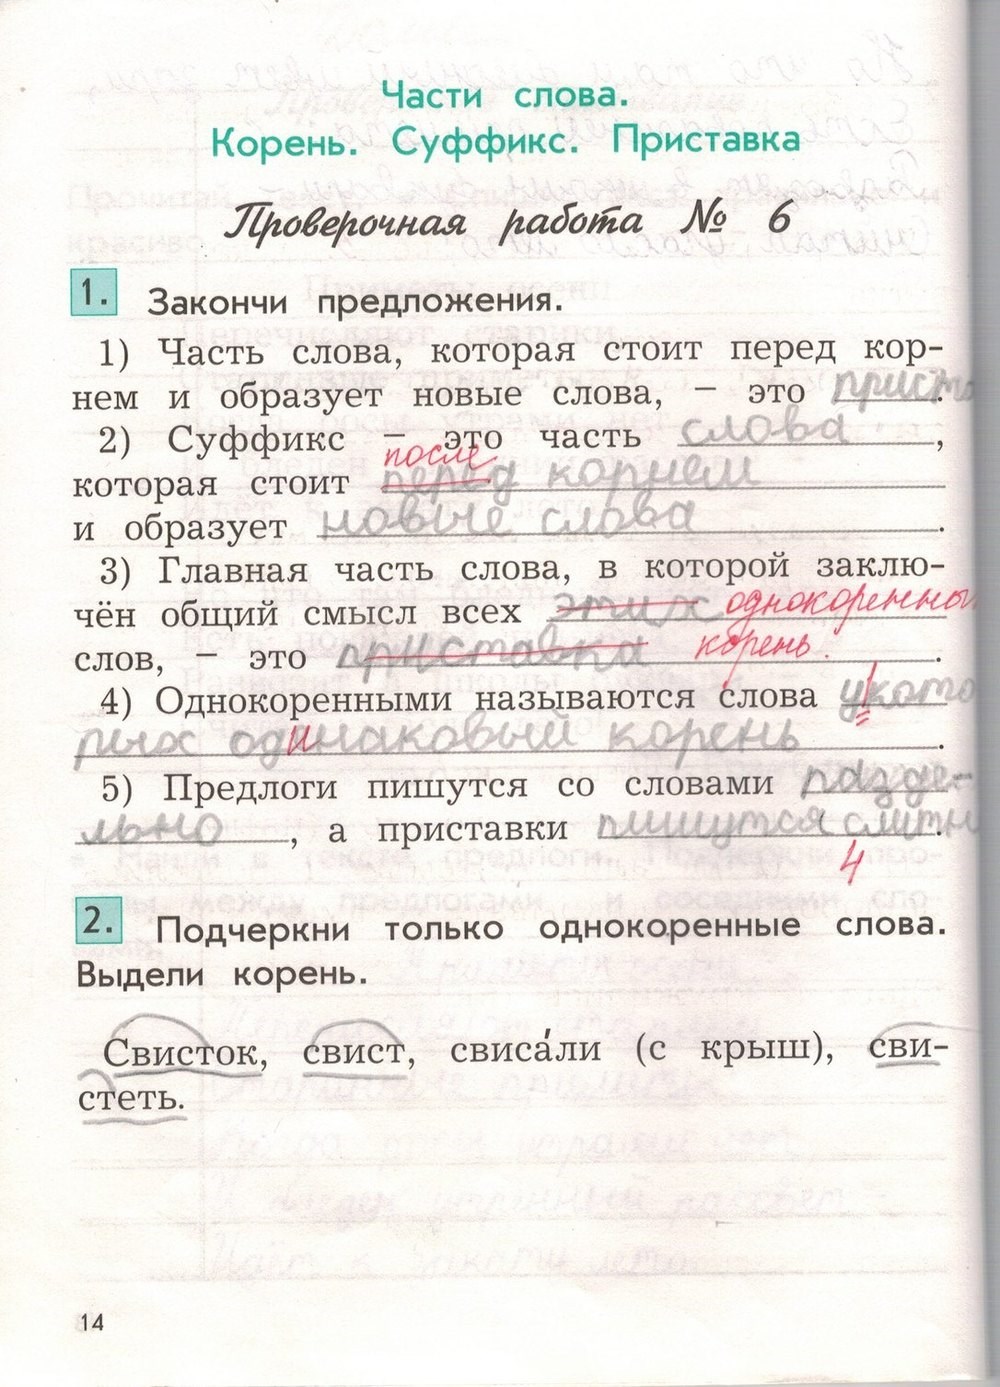 Части слова.
Корень. Суффикс. Приставка
Проверочная работа № 6
1. Закончи предложения.
1) Часть слова, которая стоит перед кор-
нем и образует новые слова, – это приста.
2) Суффикс – это часть слова,
после
которая стоит перед корнем
и образует новые слова.
3) Главная часть слова, в которой заклю-
чён общий смысл всех этих однокоренны
слов, – это приставка корень.
4) Однокоренными называются слова у|кото
рых одинаковый корень.
5) Предлоги пишутся со словами разде-
льно, а приставки пишутся слитн.
4
2. Подчеркни только однокоренные слова.
Выдели корень.
Свисток, свист, свиса́ли (с крыш), сви-
стеть.
14